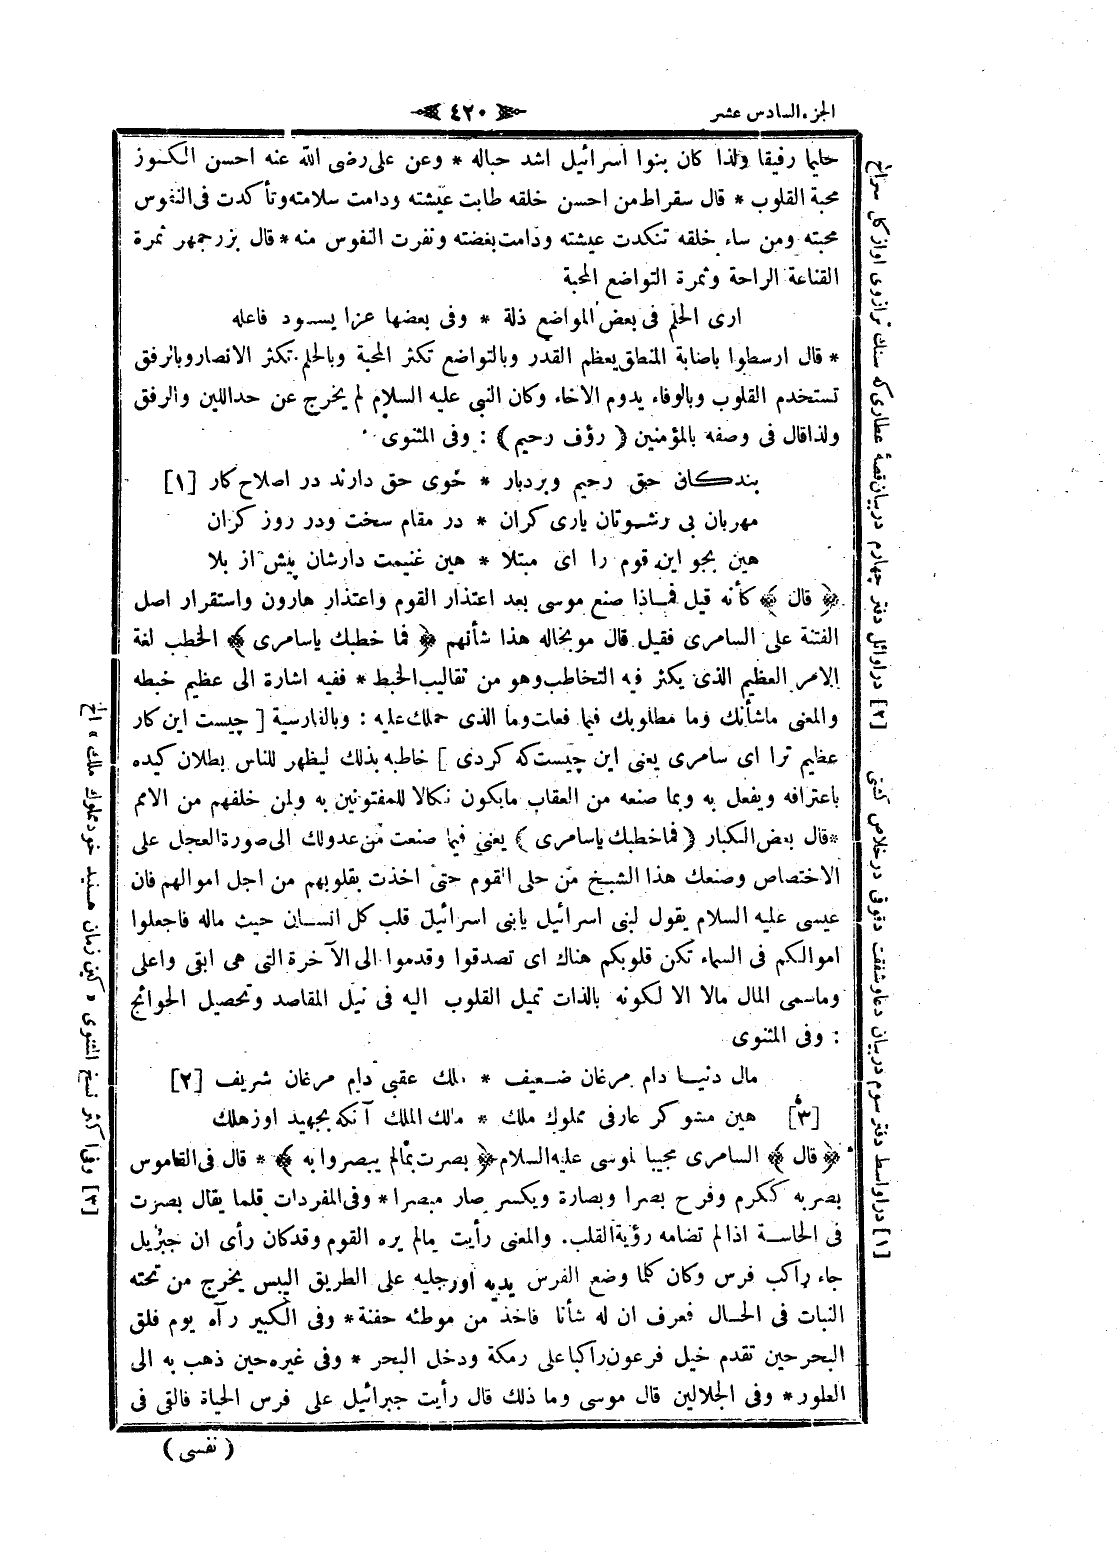 الجزء السادس عشر
٤٢٠
حليما رفيقا ولذا كان بنوا اسرائيل اشد حباله * وعن على رضى الله عنه احسن الكنوز
محبة القلوب * قال سقراط من احسن خلقه طابت عيشته ودامت سلامته وتأكدت فى النفوس
محبته ومن ساء خلقه تنكدت عيشته ودامت بغضته ونفرت النفوس منه * قال بزرجمهر ثمرة
القناعة الراحة وثمرة التواضع المحبة
ارى الحلم فى بعض المواضع ذلة * وفى بعضها عزا يسود فاعله
* قال ارسطوا باصابة المنطق يعظم القدر وبالتواضع تكثر المحبة وبالحلم تكثر الانصار وبالرفق
تستخدم القلوب وبالوفاء يدوم الاخاء وكان النبى عليه السلام لم يخرج عن حد اللين والرفق
ولذا قال فى وصفه بالمؤمنين ( رؤف رحيم ) : وفى المثنوى
بندكان حق رحيم وبردبار * خوى حق دارند در اصلاح كار [١]
مهربان بى رشوتان يارى كران * در مقام سخت ودر روز كران
هين بجو اين قوم را اى مبتلا * هين غنيمت دارشان پيش از بلا
﴿ قال ﴾ كأنه قيل فماذا صنع موسى بعد اعتذار القوم واعتذار هارون واستقرار اصل
الفتنة على السامرى فقيل قال موبخاله هذا شأنهم ﴿ فما خطبك ياسامرى ﴾ الخطب لغة
الامر العظيم الذى يكثر فيه التخاطب وهو من تقاليب الخبط * ففيه اشارة الى عظيم خبطه
والمعنى ماشأنك وما مطلوبك فيما فعلت وما الذى حملك عليه : وبالفارسية [ چيست اين كار
عظيم ترا اى سامرى يعنى اين چيست كه كردى ] خاطبه بذلك ليظهر للناس بطلان كيده
باعترافه ويفعل به وبما صنعه من العقاب مايكون نكالا للمفتونين به ولمن خلفهم من الامم
* قال بعض الكبار ( فما خطبك ياسامرى ) يعنى فيما صنعت من عدولك الى صورة العجل على
الاختصاص وصنعك هذا الشبخ من حلى القوم حتى اخذت بقلوبهم من اجل اموالهم فان
عيسى عليه السلام يقول لبنى اسرائيل يابنى اسرائيل قلب كل انسان حيث ماله فاجعلوا
اموالكم فى السماء تكن قلوبكم هناك اى تصدقوا وقدموا الى الآخرة التى هى ابقى واعلى
وماسمى المال مالا الا لكونه بالذات تميل القلوب اليه فى نيل المقاصد وتحصيل الحوائج
: وفى المثنوى
مال دنيا دام مرغان ضعيف * ملك عقبى دام مرغان شريف [٢]
[٣] هين مشو كر عارفى مملوك ملك * مالك الملك آنكه بجهيد اوزهلك
﴿ قال ﴾ السامرى مجيبا لموسى عليه السلام ﴿ بصرت بمالم يبصروا به ﴾ * قال فى القاموس
بصر به ككرم وفرح بصرا وبصارة ويكسر صار مبصرا * وفى المفردات قلما يقال بصرت
فى الحاسة اذالم تضامه رؤية القلب. والمعنى رأيت مالم يره القوم وقد كان رأى ان جبريل
جاء راكب فرس وكان كلما وضع الفرس يديه اورجليه على الطريق اليبس يخرج من تحته
النبات فى الحال فعرف ان له شأنا فاخذ من موطئه حفنة * وفى الكبير رآه يوم فلق
البحر حين تقدم خيل فرعون راكبا على رمكة ودخل البحر * وفى غيره حين ذهب به الى
الطور * وفى الجلالين قال موسى وما ذلك قال رأيت جبرائيل على فرس الحياة فالقى فى
( نفسى )
[١] دراواسط دفتر سوم دربيان دعاو شفقت دقوقى درخلاص كشتى [٢] دراوائل دفتر چهارم دربيان قصۀ عطارى كه سنك ترازوى اواز كل سرالخ
[٣] وفى اكثر نسخ المثنوى « كين زمان هستيد خود مملوك ملك » الخ